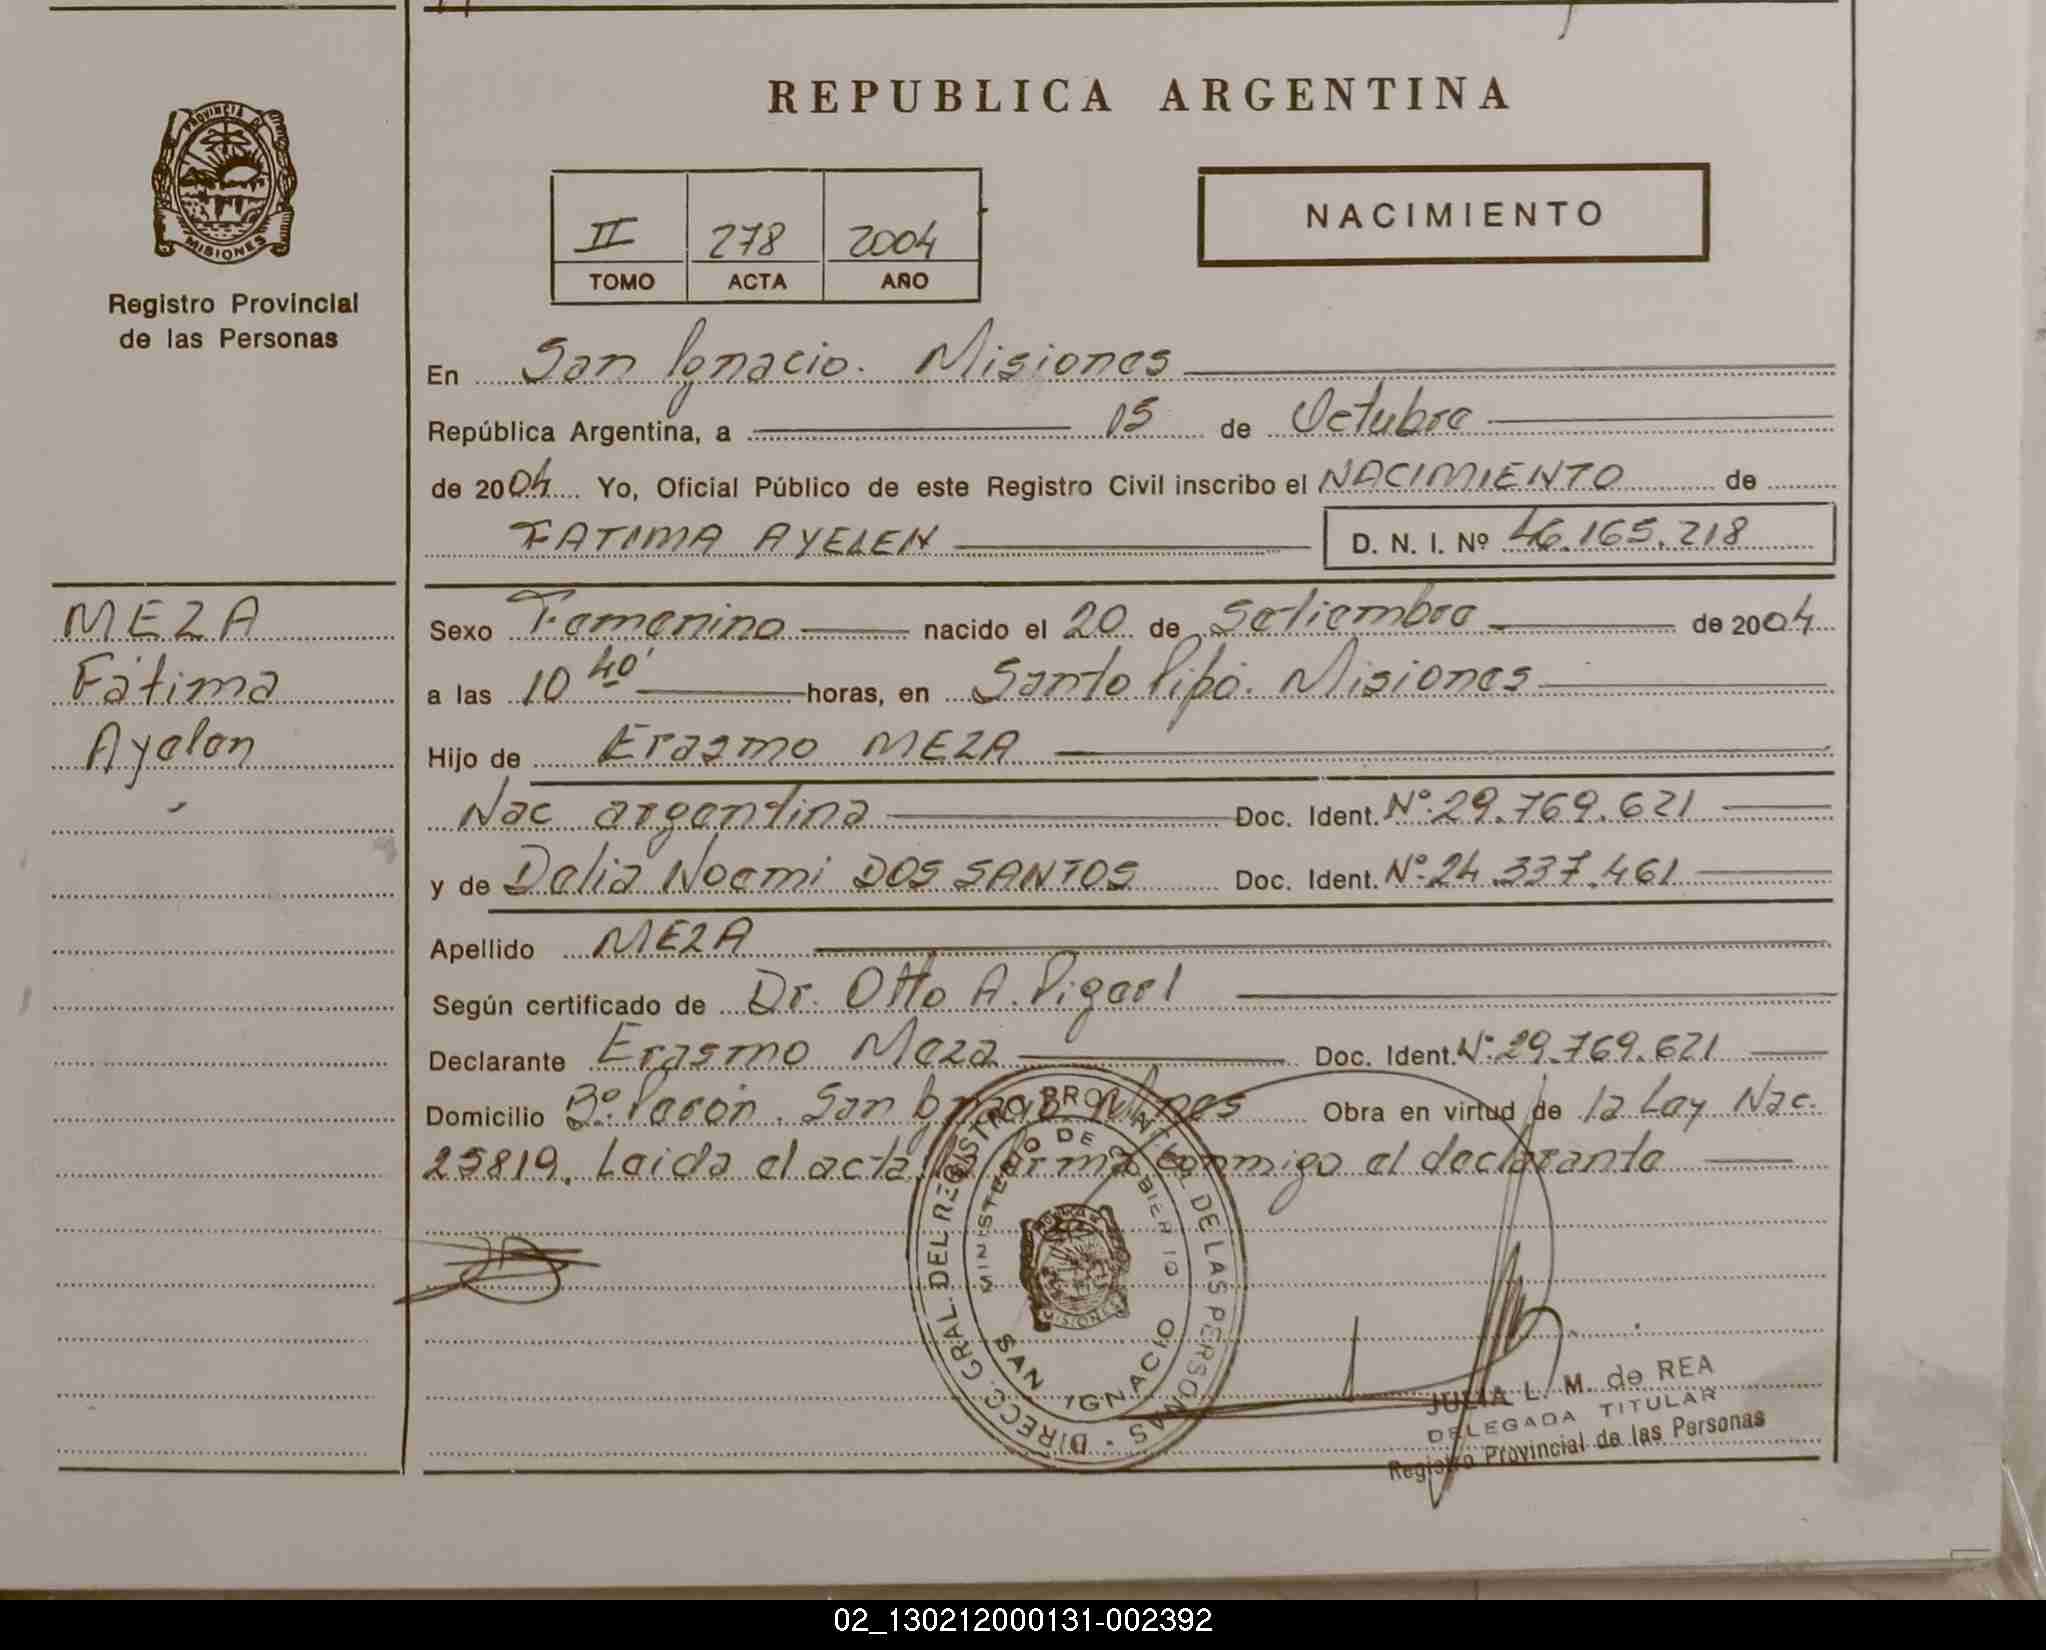 REPUBLICA ARGENTINA
PROVINCIA DE
MISIONES
Registro Provincial
de las Personas
II 278 2004
TOMO ACTA AÑO
NACIMIENTO
En San Ignacio. Misiones
República Argentina, a 15 de Octubre
de 2004 Yo, Oficial Público de este Registro Civil inscribo el NACIMIENTO de
FATIMA AYELEN D. N. I. Nº 46.165.218
MEZA
Fátima
Ayelen
Sexo Femenino nacido el 20 de Setiembre de 2004
a las 10 40' horas, en Santo Pipó. Misiones
Hijo de Erasmo MEZA
Nac argentina Doc. Ident. Nº 29.769.621
y de Delia Noemi DOS SANTOS Doc. Ident. Nº 24.337.461
Apellido MEZA
Según certificado de Dr. Otto A.
Declarante Erasmo Meza Doc. Ident. Nº 29.769.621
Domicilio Bº Perón. San Ignacio Mnes Obra en virtud de la Ley Nac.
25819. Leida el acta, la firma conmigo el declarante
DIRECC. GRAL. DEL REGISTRO PROVINCIAL DE LAS PERSONAS
MINISTERIO DE GOBIERNO
SAN IGNACIO
MISIONES
JULIA L. M. de REA
DELEGADA TITULAR
Registro Provincial de las Personas
02_130212000131-002392